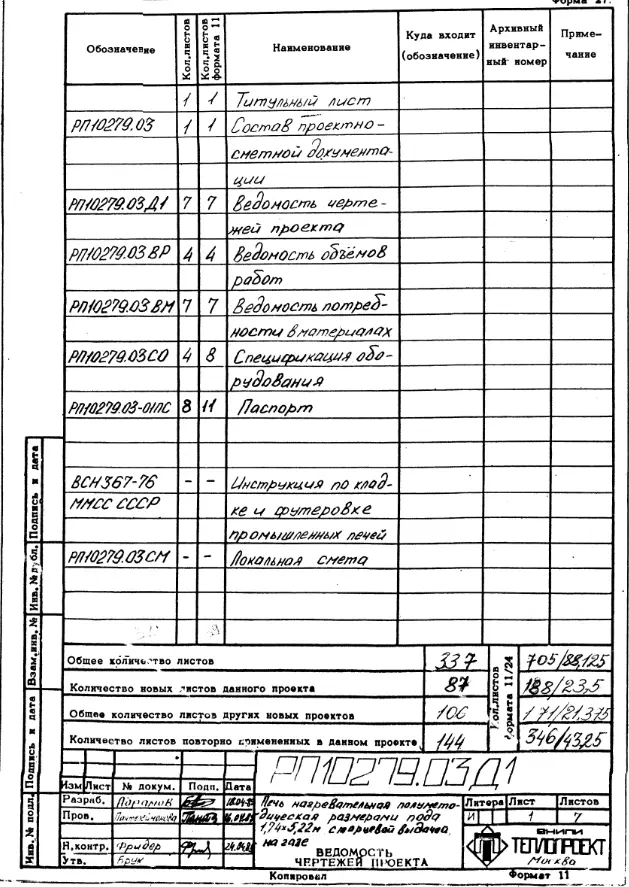 Форма 27.
Обозначение Кол.листов Кол.листов формата 11 Наименование Куда входит (обозначение) Архивный инвентарный номер Примечание
1 1 Титульный лист
РП10279.03 1 1 Состав проектно-
сметной документа-
ции
РП10279.03.Д1 7 7 Ведомость черте-
жей проекта
РП10279.03 ВР 4 4 Ведомость объёмов
работ
РП10279.03 ВМ 7 7 Ведомость потреб-
ности в материалах
РП10279.03 СО 4 8 Спецификация обо-
рудования
РП10279.03-01ПС 8 11 Паспорт
ВСН367-76 - - Инструкция по клад-
ММСС СССР ке и футеровке
промышленных печей
РП10279.03 СМ - - Локальная смета
Общее количество листов 337 705/88,125
Количество новых листов данного проекта 87 188/23,5
Общее количество листов других новых проектов 106 171/21.375
Количество листов повторно применённых в данном проекте 144 346/43,25
Кол.листов формата 11/24
РП10279.03Д1
Изм Лист № докум. Подп. Дата
Разраб.
Пров.
Н.контр. Фридер 24.04.8
Утв. Брук
Печь нагревательная полумето-
дическая размерами пода
1,74×5,22м с торцевой выдачей
на газе
ВЕДОМОСТЬ
ЧЕРТЕЖЕЙ ПРОЕКТА
Литера Лист Листов
И 1 7
ВНИПИ
ТЕПЛОПРОЕКТ
Москва
Копировал Формат 11
Инв.№ подл. Подпись и дата Взам.инв.№ Инв.№ дубл. Подпись и дата